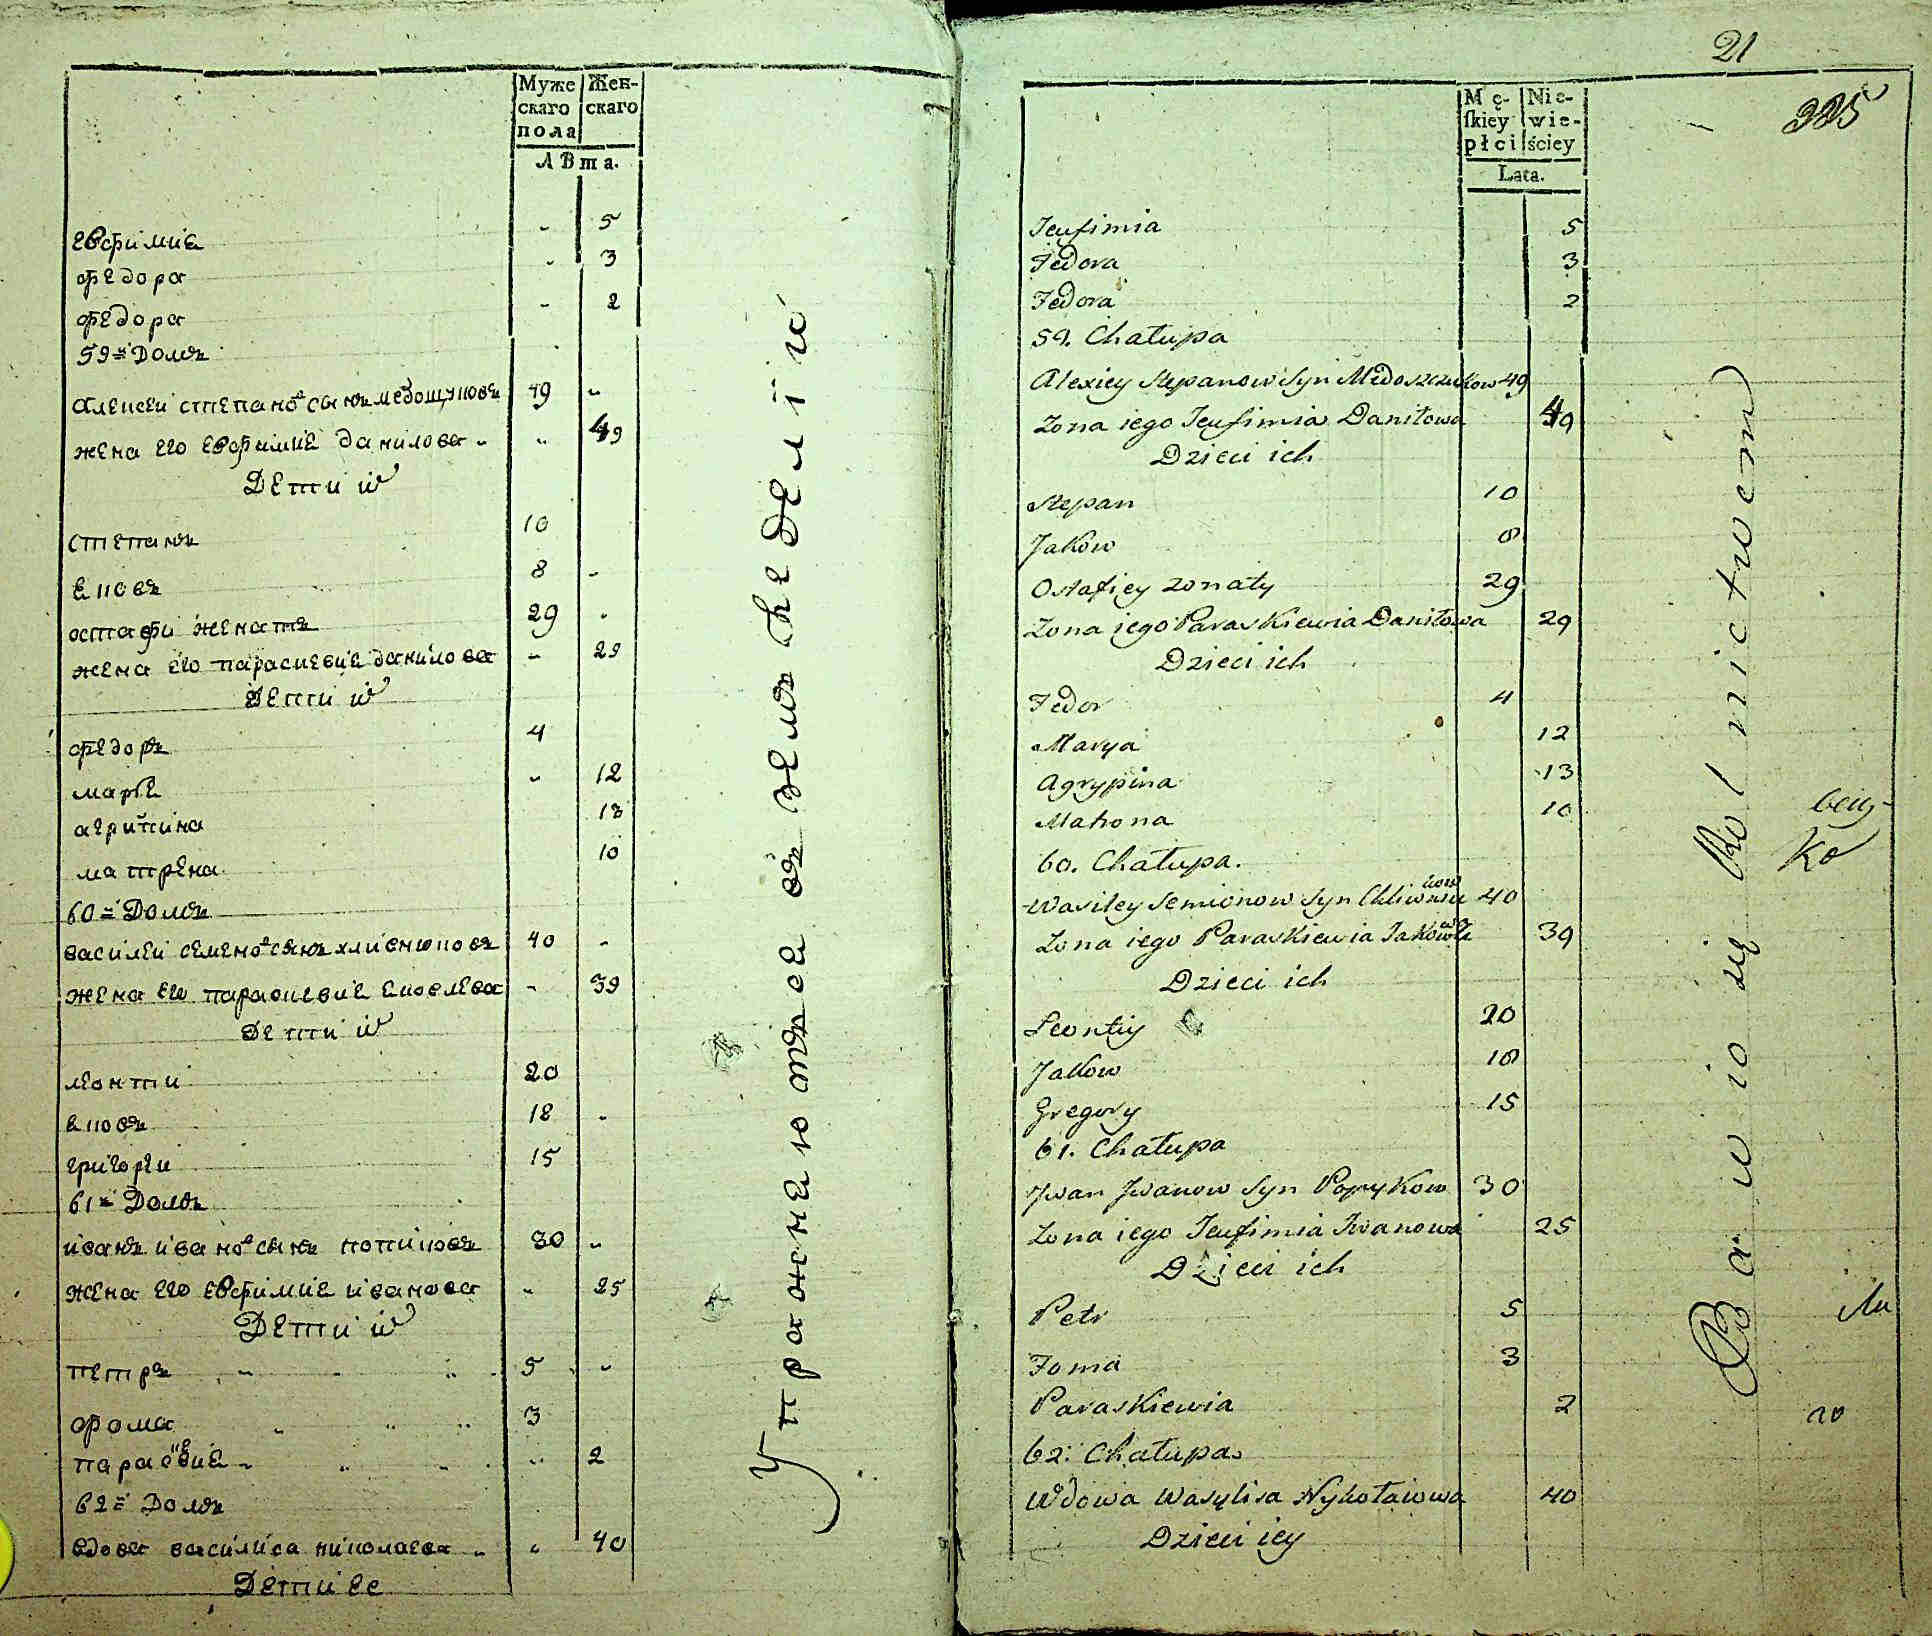 Муже
скаго
пола
Жен-
скаго
лѣта.
евфимиѧ " 5
федора " 3
федора " 2
59ъ Домъ
алеѯеи степано сынъ медощуковъ 49 "
жена его евфимиѧ данилова " 49
Дети их
степанъ 10
ѧковъ 8 "
остафи женатъ 29 "
жена его параскевиѧ данилова " 29
Дети их
федоръ 4
марьѧ " 12
агрипина 13
матрена 10
60ъ Домъ
василеи семено сынъ хливнюковъ 40 "
жена его параскевиѧ ѧковлева " 39
Дети их
леонти 20
ѧковъ 18 "
григореи 15
61ъ Домъ
иванъ ивано сынъ попиковъ 30 "
жена его евфимиѧ иванова " 25
Дети их
петръ 5 "
фома 3
параскевиѧ " 2
62ъ Домъ
вдова василиса николаева " 40
Дети ее
Упражнѧются въ земледелiи
21
325
Mę-
skiey
płci
Nie-
wie-
ściey
Lata.
Jeufimia 5
Fedora 3
Fedora 2
59. Chałupa
Alexiey Stepanow Syn Medoszczukow 49
Zona iego Jeufimia Daniłowa 49
Dzieci ich
Stepan 10
Jakow 8
Ostafiey zonaty 29
Zona iego Paraskiewia Daniłowa 29
Dzieci ich
Fedor 4
Marya 12
Agrypina 13
Matrona 10
60. Chałupa.
Wasiley Semionow Syn Chliwniukow 40
Zona iego Paraskiewia Jakowlewa 39
Dzieci ich
Leontiy 20
Jakow 18
Gregory 15
61. Chałupa
Jwan Jwanow Syn Popykow 30
Zona iego Jeufimia Iwanowa 25
Dzieci ich
Petr 5
Foma 3
Paraskiewia 2
62. Chałupa
Wdowa Wasylisa Nykołaiowa 40
Dzieci iey
Bawio się Rolnictwem
ko